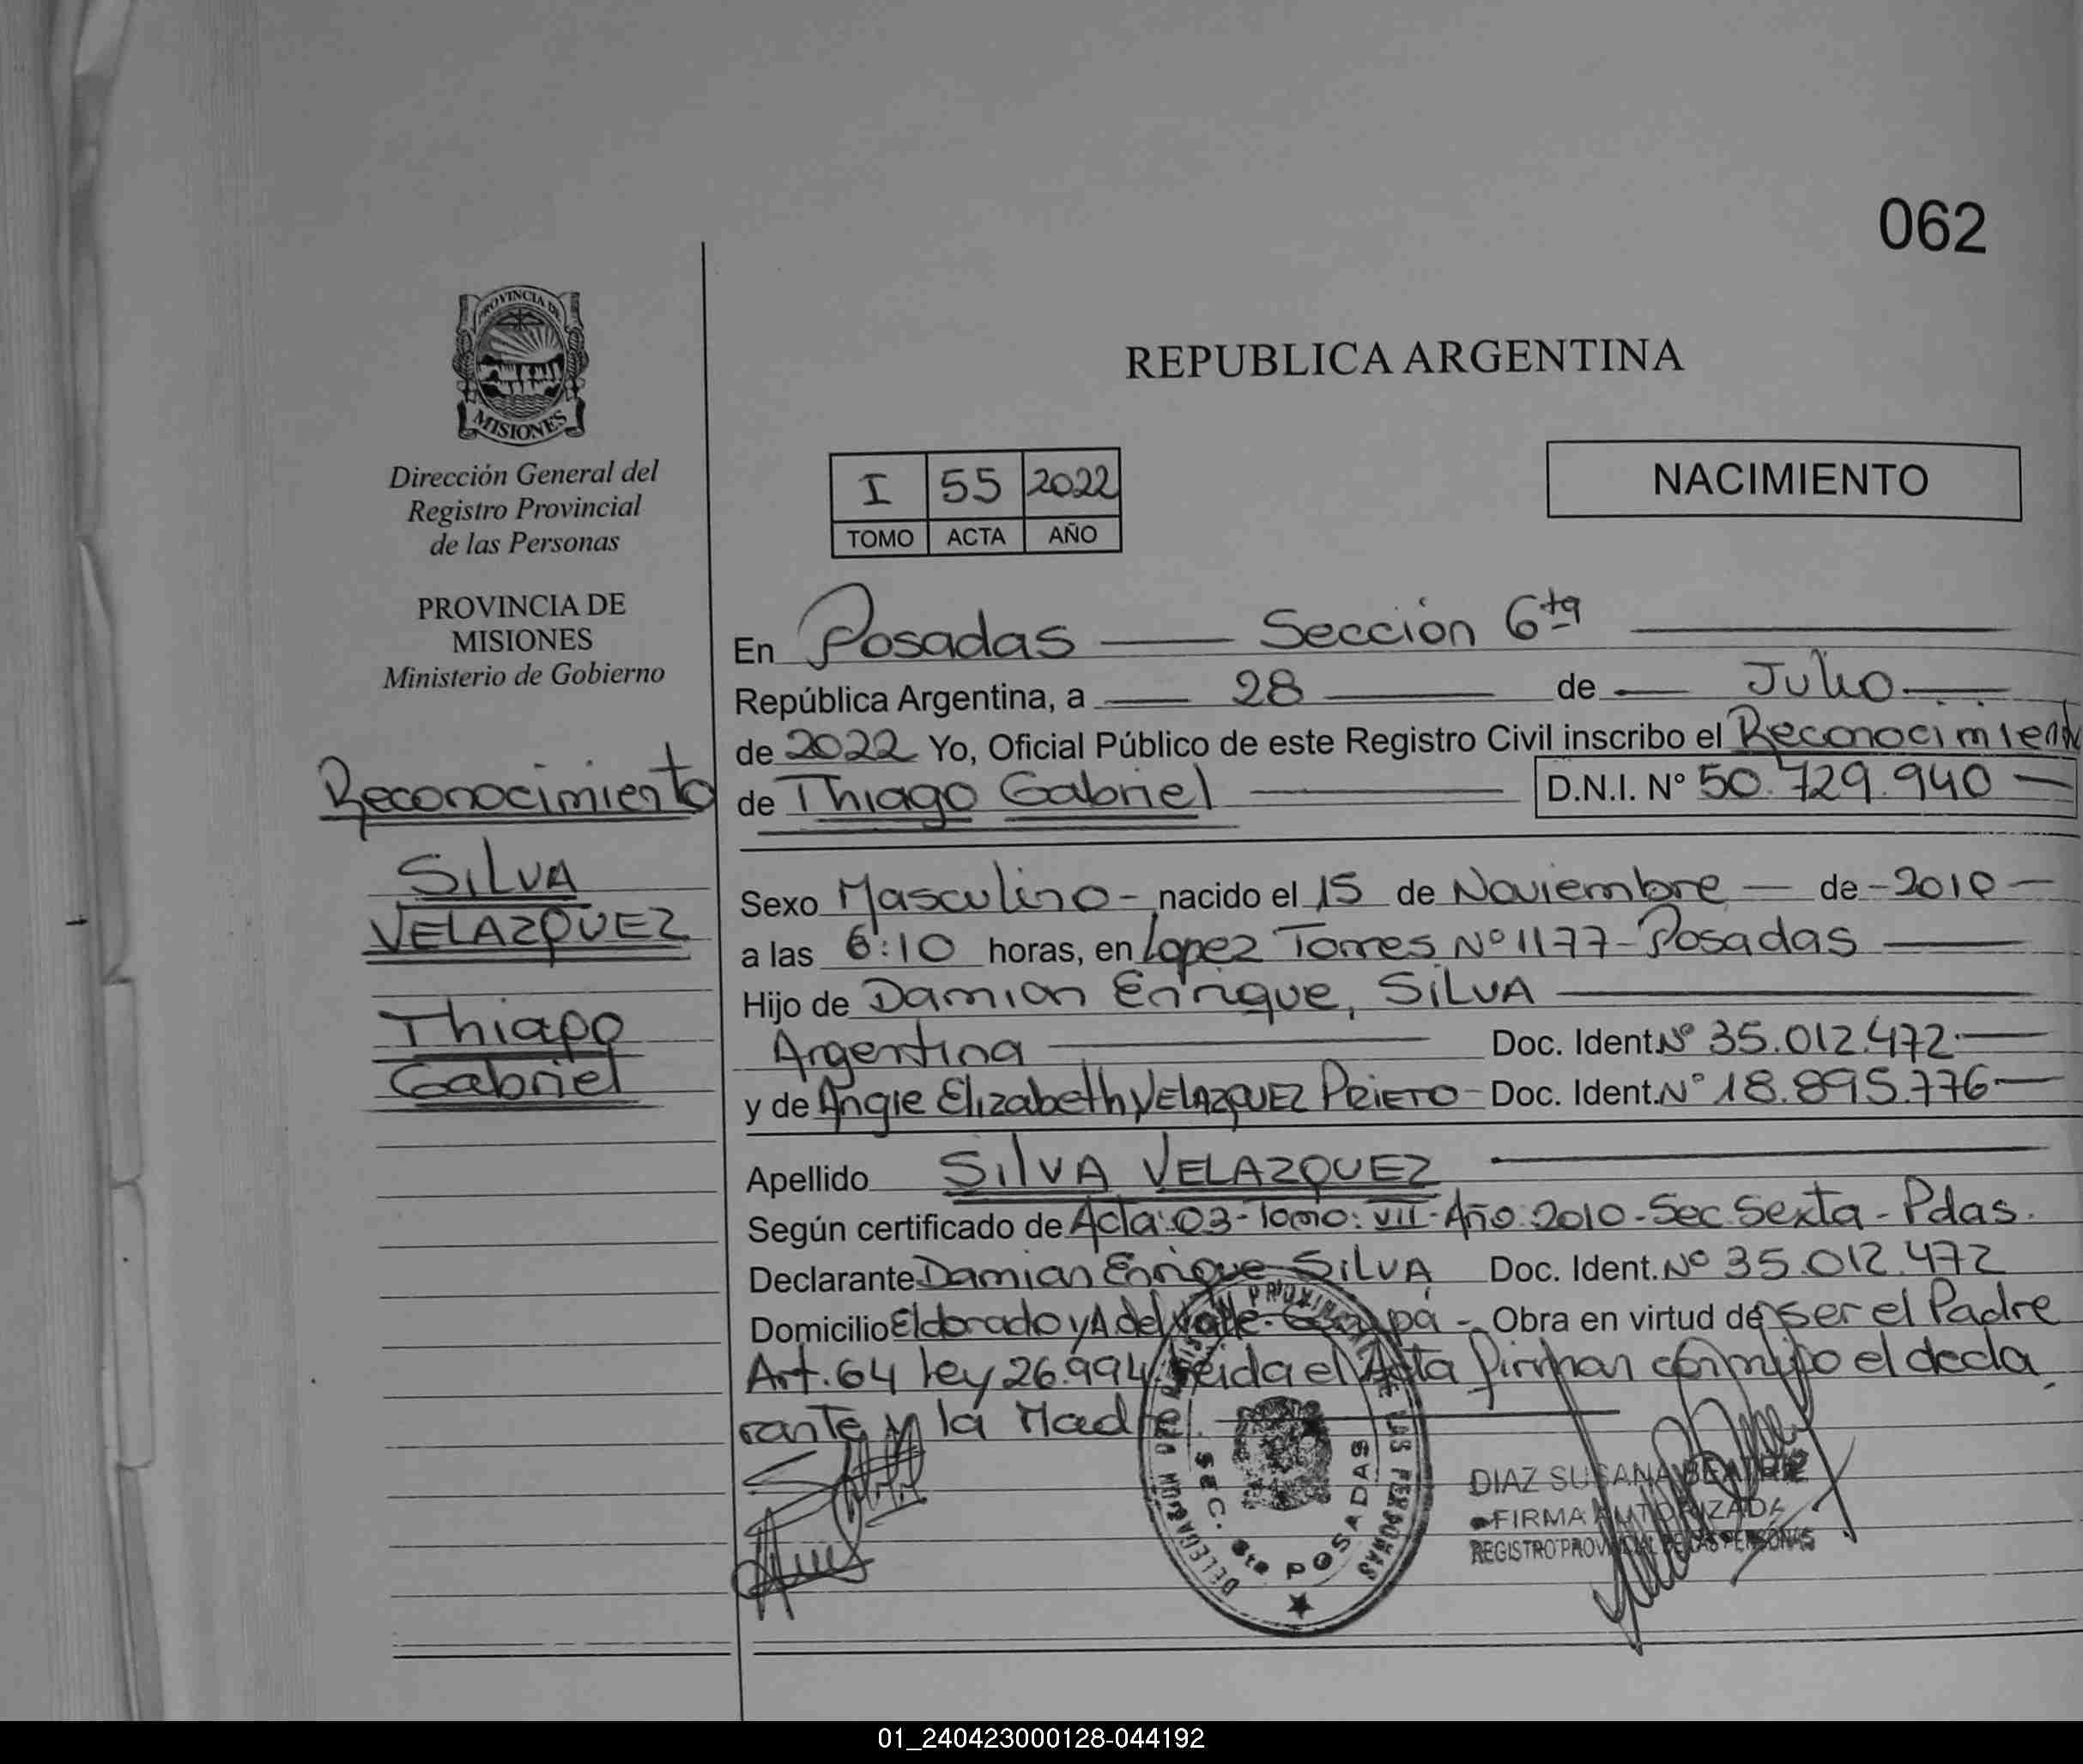 062
PROVINCIA DE
MISIONES
Dirección General del
Registro Provincial
de las Personas
PROVINCIA DE
MISIONES
Ministerio de Gobierno
Reconocimiento
SILVA
VELAZQUEZ
Thiago
Gabriel
REPUBLICA ARGENTINA
NACIMIENTO
I 55 2022
TOMO ACTA AÑO
En Posadas — Sección 6ta
República Argentina, a — 28 — de — Julio —
de 2022 Yo, Oficial Público de este Registro Civil inscribo el Reconocimiento
de Thiago Gabriel — D.N.I. N° 50.729.940 —
Sexo Masculino - nacido el 15 de Noviembre — de - 2010 —
a las 6:10 horas, en Lopez Torres N° 1177 - Posadas —
Hijo de Damian Enrique, SILVA —
Argentina — Doc. Ident. N° 35.012.472 —
y de Angie Elizabeth VELAZQUEZ PRIETO - Doc. Ident. N° 18.895.776 —
Apellido SILVA VELAZQUEZ —
Según certificado de Acta: 03 - Tomo: VII - Año: 2010 - Sec. Sexta - Pdas.
Declarante Damian Enrique SILVA Doc. Ident. N° 35.012.472
Domicilio Eldorado y A del Valle - Obra en virtud de ser el Padre
Art. 64 Ley 26.994. Leida el Acta firman conmigo el decla
rante y la Madre. —
SEC. 6ta POSADAS
DIAZ SUSANA BEATRIZ
FIRMA AUTORIZADA
REGISTRO PROVINCIAL DE LAS PERSONAS
01_240423000128-044192